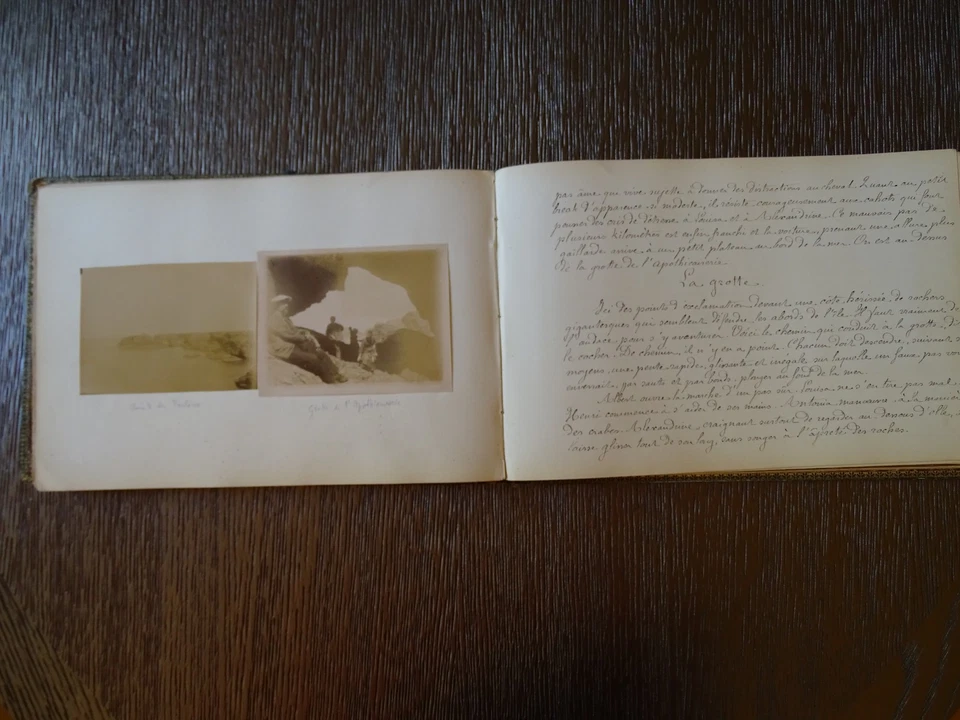 Grotte de l'Apothicairerie
pas âme que vive sujette à donner des distractions au cheval. Quant au petit
break d'apparence si modeste, il résiste courageusement aux cahots qui font
pousser des cris de détresse à Louisa et à Alexandrine. Ce mauvais pas de
plusieurs kilomètres est enfin franchi et la voiture, prenant une allure plus
gaillarde arrive à un petit plateau au bord de la mer. On est au dessus
de la grotte de l'Apothicairerie.
La grotte.
Ici des points d'exclamation devant une côte hérissée de rochers
gigantesques qui semblent défendre les abords de l'île. Il faut vraiment de
l'audace pour s'y aventurer. Voici le chemin qui conduit à la grotte, dit
le cocher. De chemin, il n'y en a point. Chacun doit descendre, suivant ses
moyens, une pente rapide, glissante et inégale sur laquelle un faux pas vous
enverrait, par sauts et par bonds, plonger au fond de la mer.
Albert ouvre la marche d'un pas sûr. Louisa ne s'en tire pas mal.
Henri commence à s'aider de ses mains. Antonia manœuvre à la manière
des crabes. Alexandrine, craignant surtout de regarder au dessous d'elle, se
laisse glisser tout de son long, sans songer à l'âpreté des rochers.